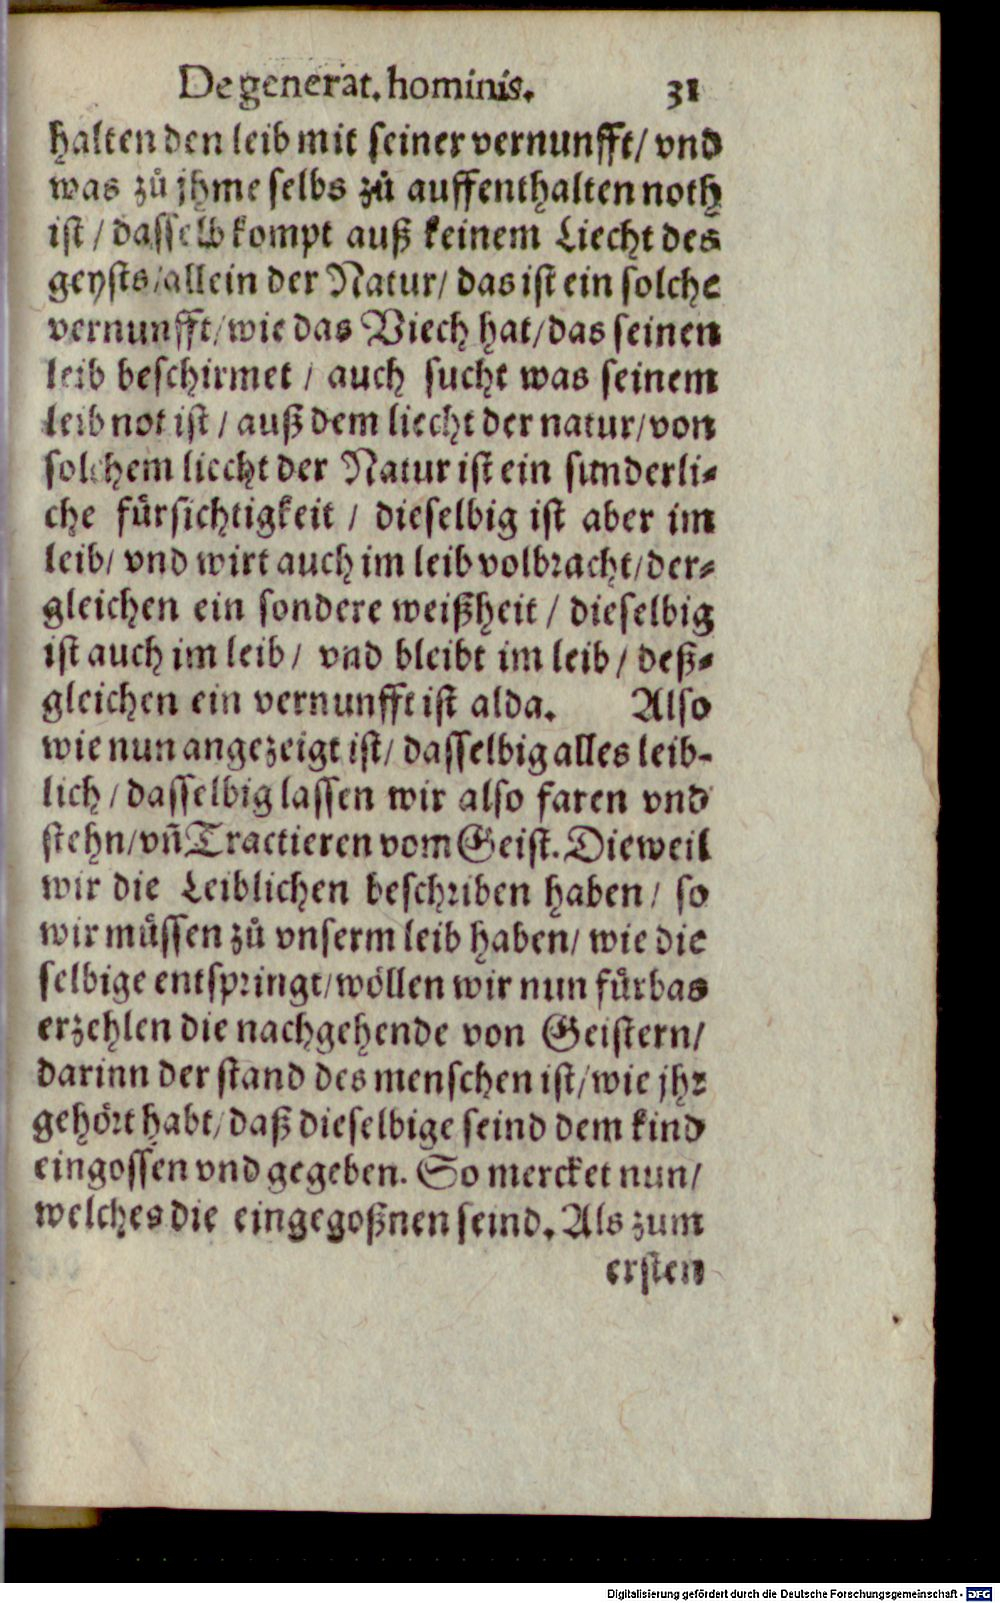 De generat. hominis. 31
halten den leib mit seiner vernunfft/ vnd
was zů jhme selbs zů auffenthalten noth
ist / dasselb kompt auß keinem Liecht des
geysts/allein der Natur/ das ist ein solche
vernunfft/wie das Viech hat/das seinen
leib beschirmet / auch sucht was seinem
leib not ist / auß dem liecht der natur/von
solchem liecht der Natur ist ein sunderli⸗
che fürsichtigkeit / dieselbig ist aber im
leib/ vnd wirt auch im leib volbracht/der⸗
gleichen ein sondere weißheit / dieselbig
ist auch im leib/ vnd bleibt im leib / deß⸗
gleichen ein vernunfft ist alda. Also
wie nun angezeigt ist/ dasselbig alles leib-
lich / dasselbig lassen wir also faren vnd
stehn/vñ Tractieren vom Geist. Dieweil
wir die Leiblichen beschriben haben / so
wir müssen zů vnserm leib haben/ wie die
selbige entspringt/wöllen wir nun fürbas
erzehlen die nachgehende von Geistern/
darinn der stand des menschen ist/wie jhr
gehört habt/daß dieselbige seind dem kind
eingossen vnd gegeben. So mercket nun/
welches die eingegoßnen seind. Als zum
ersten
Digitalisierung gefördert durch die Deutsche Forschungsgemeinschaft - DFG